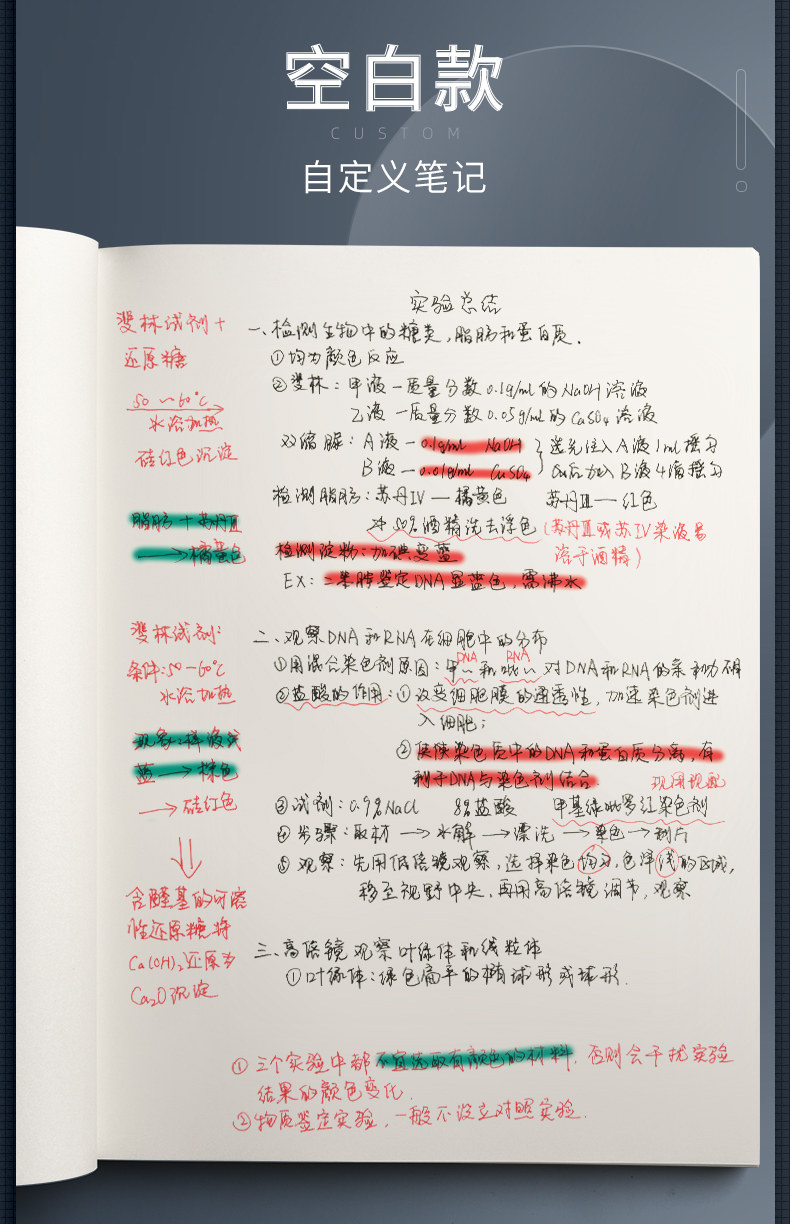 空白款
CUSTOM
自定义笔记
实验总结
斐林试剂+
还原糖
50~60℃
水浴加热
砖红色沉淀
脂肪+苏丹Ⅲ
→橘黄色
斐林试剂:
条件:50~60℃
水浴加热
现象:样液浅
蓝→棕色
→砖红色
含醛基的可溶
性还原糖将
Ca(OH)₂还原为
Ca₂O沉淀
一、检测生物中的糖类,脂肪和蛋白质.
①均为颜色反应
②斐林:甲液一质量分数0.1g/ml的NaOH溶液
乙液一质量分数0.05g/ml的CuSO₄溶液
双缩脲:A液-0.1g/ml NaOH }送先注入A液1ml摇匀
B液-0.01g/ml CuSO₄ 后加入B液4滴摇匀
检测脂肪:苏丹IV—橘黄色 苏丹Ⅲ—红色
50%酒精洗去浮色(苏丹Ⅲ或苏IV染液易
溶于酒精)
检测淀粉:加碘变蓝
EX:二苯胺鉴定DNA显蓝色,需沸水
二、观察DNA和RNA在细胞中的分布
DNA RNA
①用混合染色剂原因:甲~和吡~对DNA和RNA的亲和力不同
②盐酸的作用:①改变细胞膜的通透性,加速染色剂进
入细胞;
②使染色质中的DNA和蛋白质分离,有
利于DNA与染色剂结合.
现用现配
③试剂:0.9%NaCl 8%盐酸 甲基绿吡罗红染色剂
④步骤:取材→水解→漂洗→染色→制片
⑤观察:先用低倍镜观察,选择染色均匀,色泽浅的区域,
移至视野中央,再用高倍镜调节,观察
三、高倍镜观察叶绿体和线粒体
①叶绿体:绿色扁平的椭球形或球形.
①三个实验中都不宜选取有颜色的材料.否则会干扰实验
结果的颜色变化.
②物质鉴定实验,一般不设立对照实验.